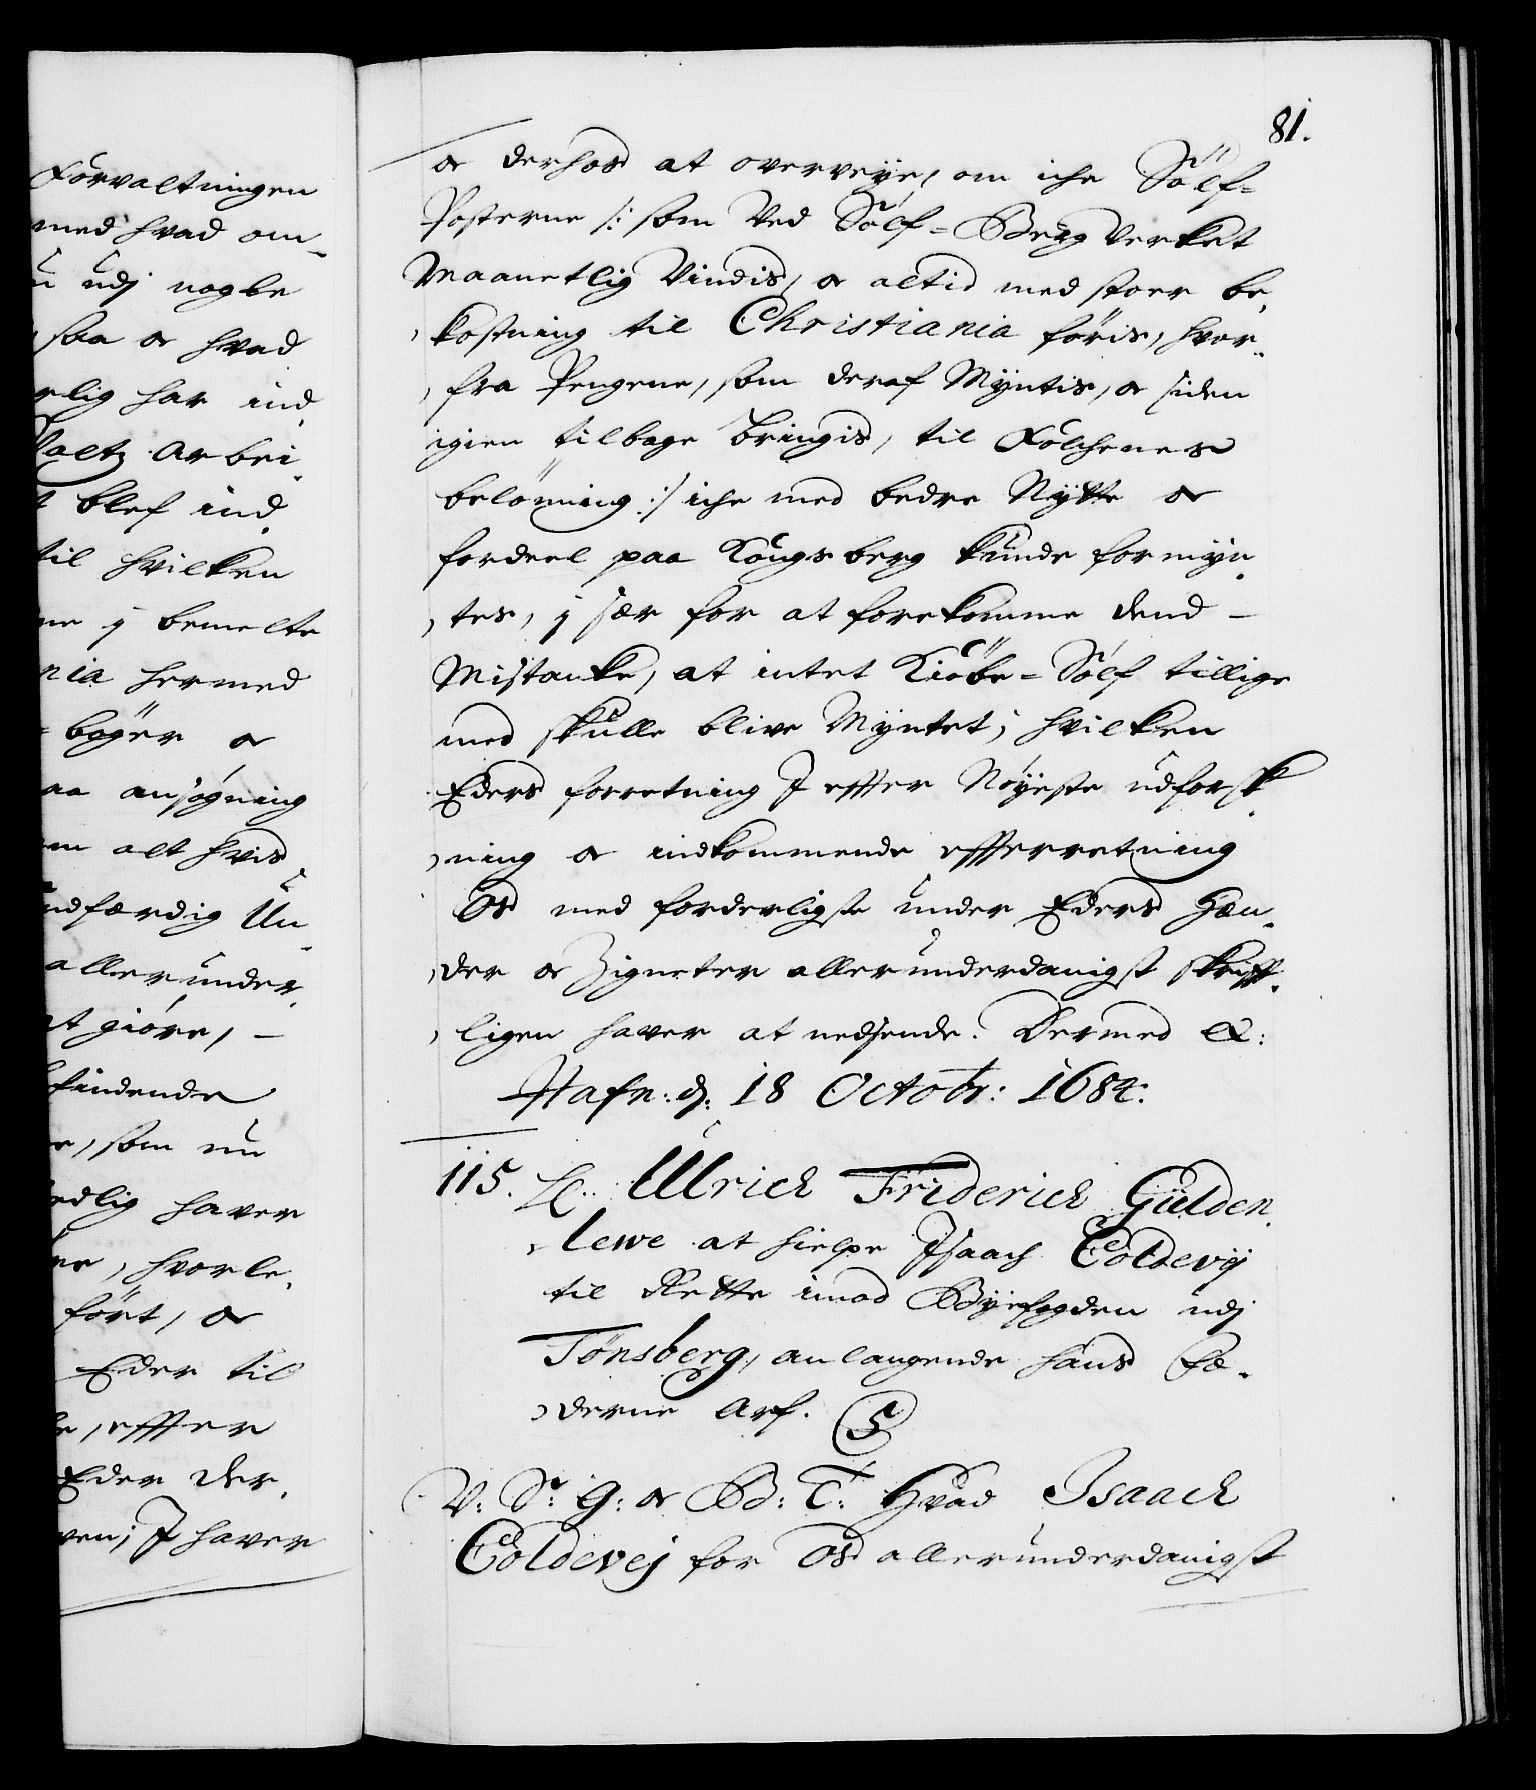 Forvaltningen
med hvad om¬
u udj nogle
saa oc hvad
rlig har ind¬
Arbei¬
blef ind¬
til hvilken
ne j bemelte
nia hermed
bøger oc
aa ansøgning
em alt hvis
ndfærdig Un¬
allerunder¬
at giøre, –
findende
e, som nu
edlig haver
ne, hvorle¬
ført, oc
Eder til
e, effter
Eder der¬
ven; I haver
81.
oc derhos at overveye, om iche Sølf=
Posterne /: som Ved Sølf=BergVerket
Maanetlig Vindis, oc altid med stoer be¬
kostning til Christiania føris, hvor¬
fra Pengene, som deraf Myntis, oc siden
igien tilbage bringis, til Folchenes
belønning :/ iche med bedre Nytte oc
fordeel paa Kongsberg kunde formyn¬
tes, j sær for at forekomme dend –
Mistanke, at intet Kiöbe=Sølf tillige
med skulle blive Myntet; hvilken
Eders forretning I effter Nøyeste udforsk¬
ning oc indkommende effterretning
Os med forderligste under Eders Hæn¬
der oc Zigneter allerunderdanigst skrifft¬
ligen haver at nedsende. Dermed &:
Hafn: d: 18 Octobr: 1684.
115. Hr: Ulrich Friderich Gülden¬
lewe at hielpe Isaach Coldevij
til Rette imod Byefogden udj
Tønsberg, anlangende hans fæ¬
derne Arf. S
V: Sr: G: oc Bd: T: Hvad Isaach
Coldevej for Os allerunderdanigst